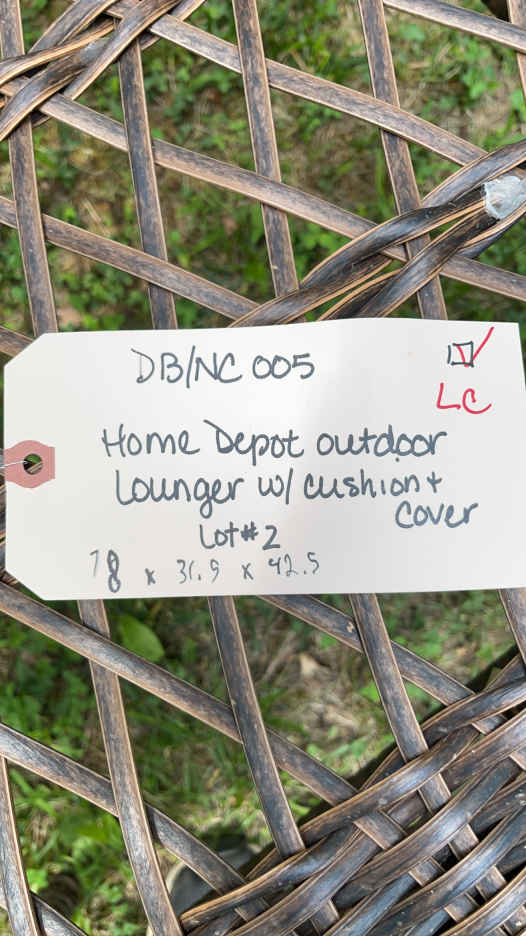 DB/NC 005
LC
Home Depot outdoor
Lounger w/ cushion +
Cover
Lot #2
78 x 31.5 x 42.5